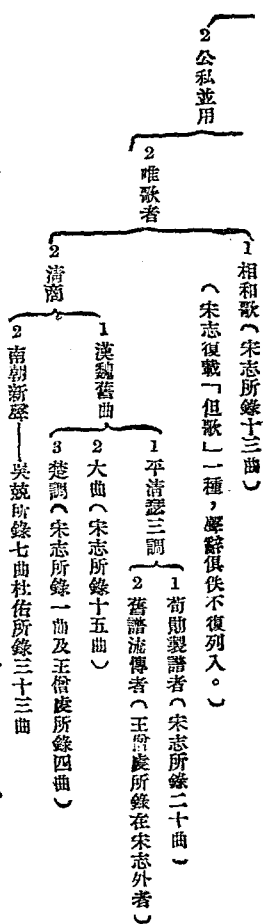 2 公私並用
2 唯歌者
1 相和歌(宋志所錄十三曲)
(宋志復載「但歌」一種,聲辭俱佚不復列入。)
2 清商
1 漢魏舊曲
1 平清瑟三調
1 荀勗製譜者(宋志所錄二十曲)
2 舊譜流傳者(王僧虔所錄在宋志外者)
2 大曲(宋志所錄十五曲)
3 楚調(宋志所錄一曲及王僧虔所錄四曲)
2 南朝新聲——吳兢所錄七曲杜佑所錄三十三曲